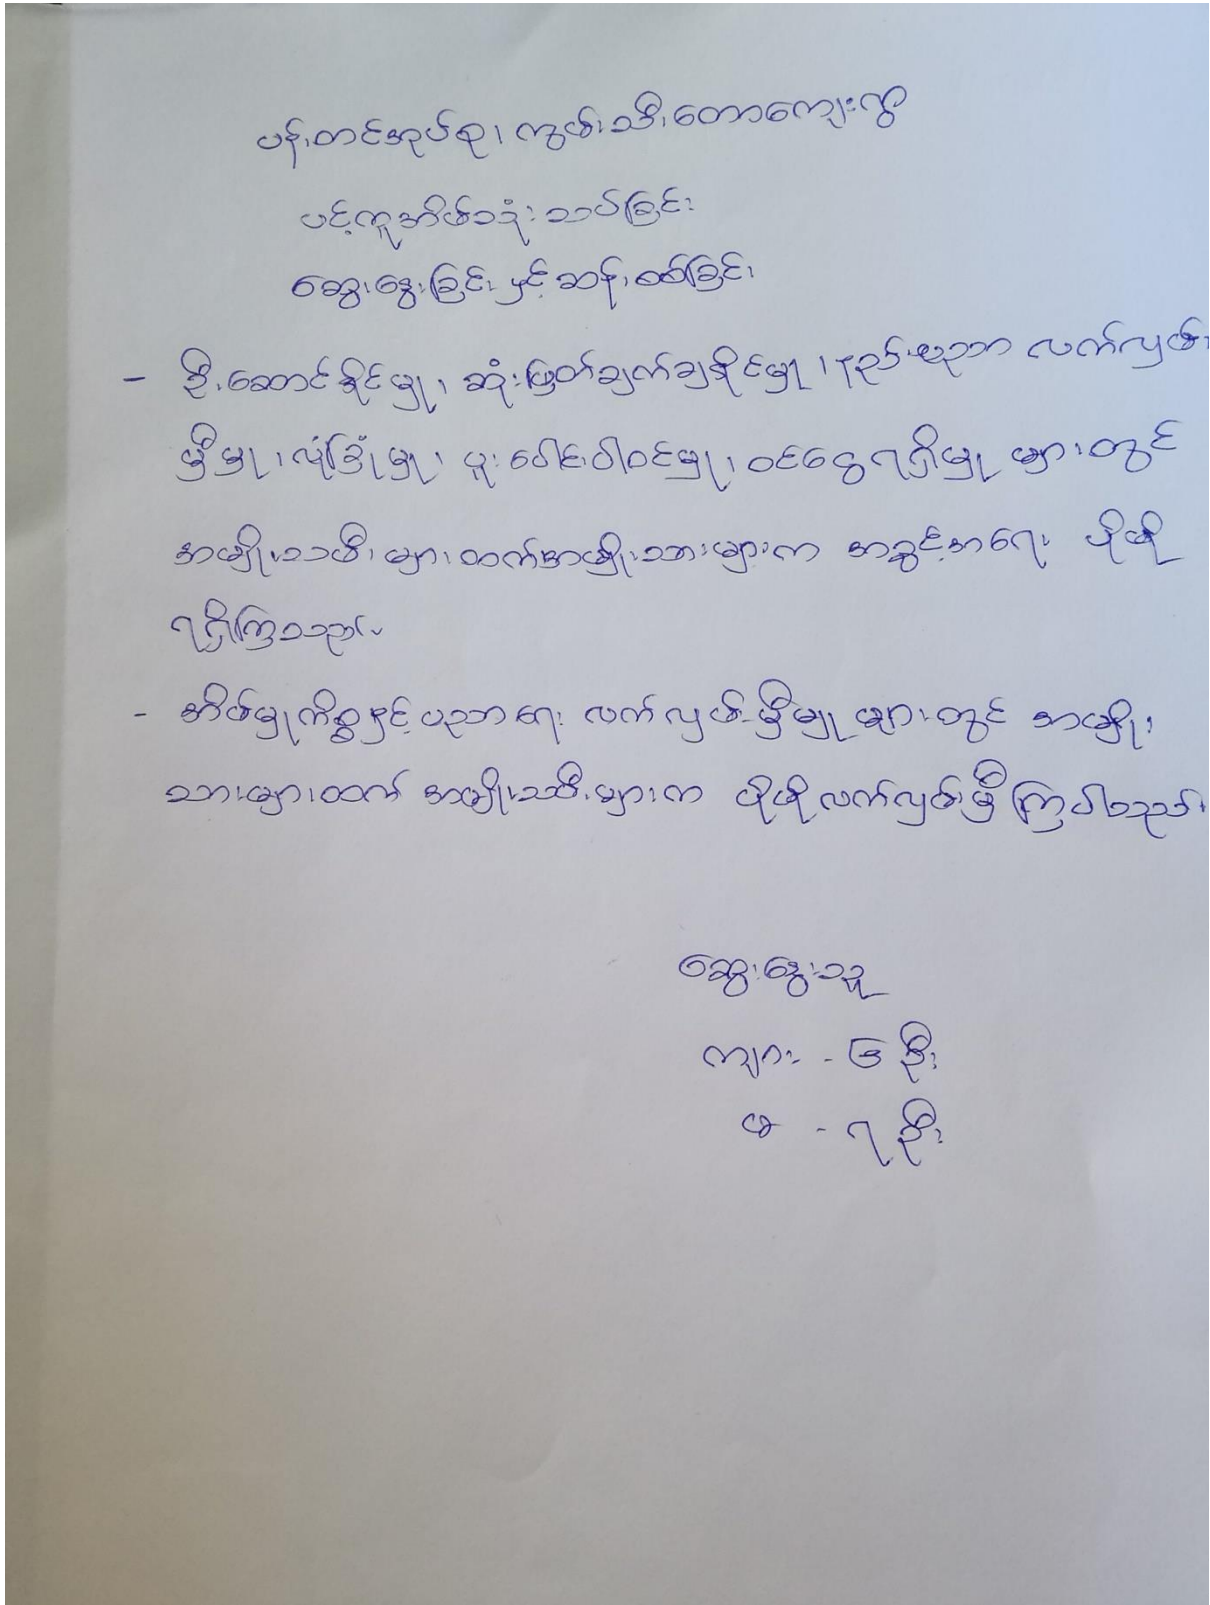 ပန်းတင်အုပ်စု၊ ကွမ်းသီးတောကျေးရွာ
ပင့်ကူအိမ်အသုံး သပ်ခြင်း
ဆွေးနွေးခြင်း နှင့် ဆန်းစစ်ခြင်း
- ဦးဆောင်နိုင်မှု၊ ဆုံးဖြတ်ချက်ချနိုင်မှု၊ နည်းပညာ လက်လှမ်း
မှီမှု၊ လုံခြုံမှု၊ ပူးပေါင်းပါဝင်မှု၊ ဝင်ငွေရရှိမှု များတွင်
အမျိုးသမီးများထက်အမျိုးသားများက အခွင့်အရေး ပိုမို
ရရှိကြသည်။
- အိမ်မှုကိစ္စနှင့် ပညာရေး လက်လှမ်းမှီမှု များတွင် အမျိုး
သားများထက် အမျိုးသမီးများက ပိုမိုလက်လှမ်းမှီ ကြပါသည်။
ဆွေးနွေးသူ
ကျား - ၆ ဦး
မ - ၇ ဦး